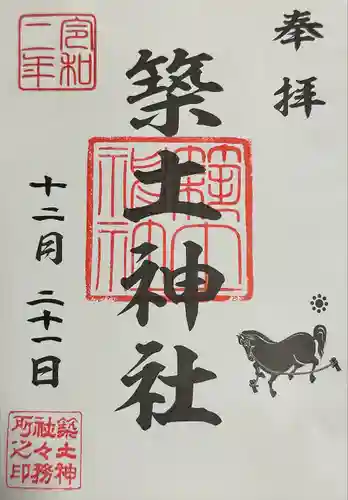 奉拝
築土神社
築土神社
令和
二年
十二月 二十一日
築土神
社々務
所之印